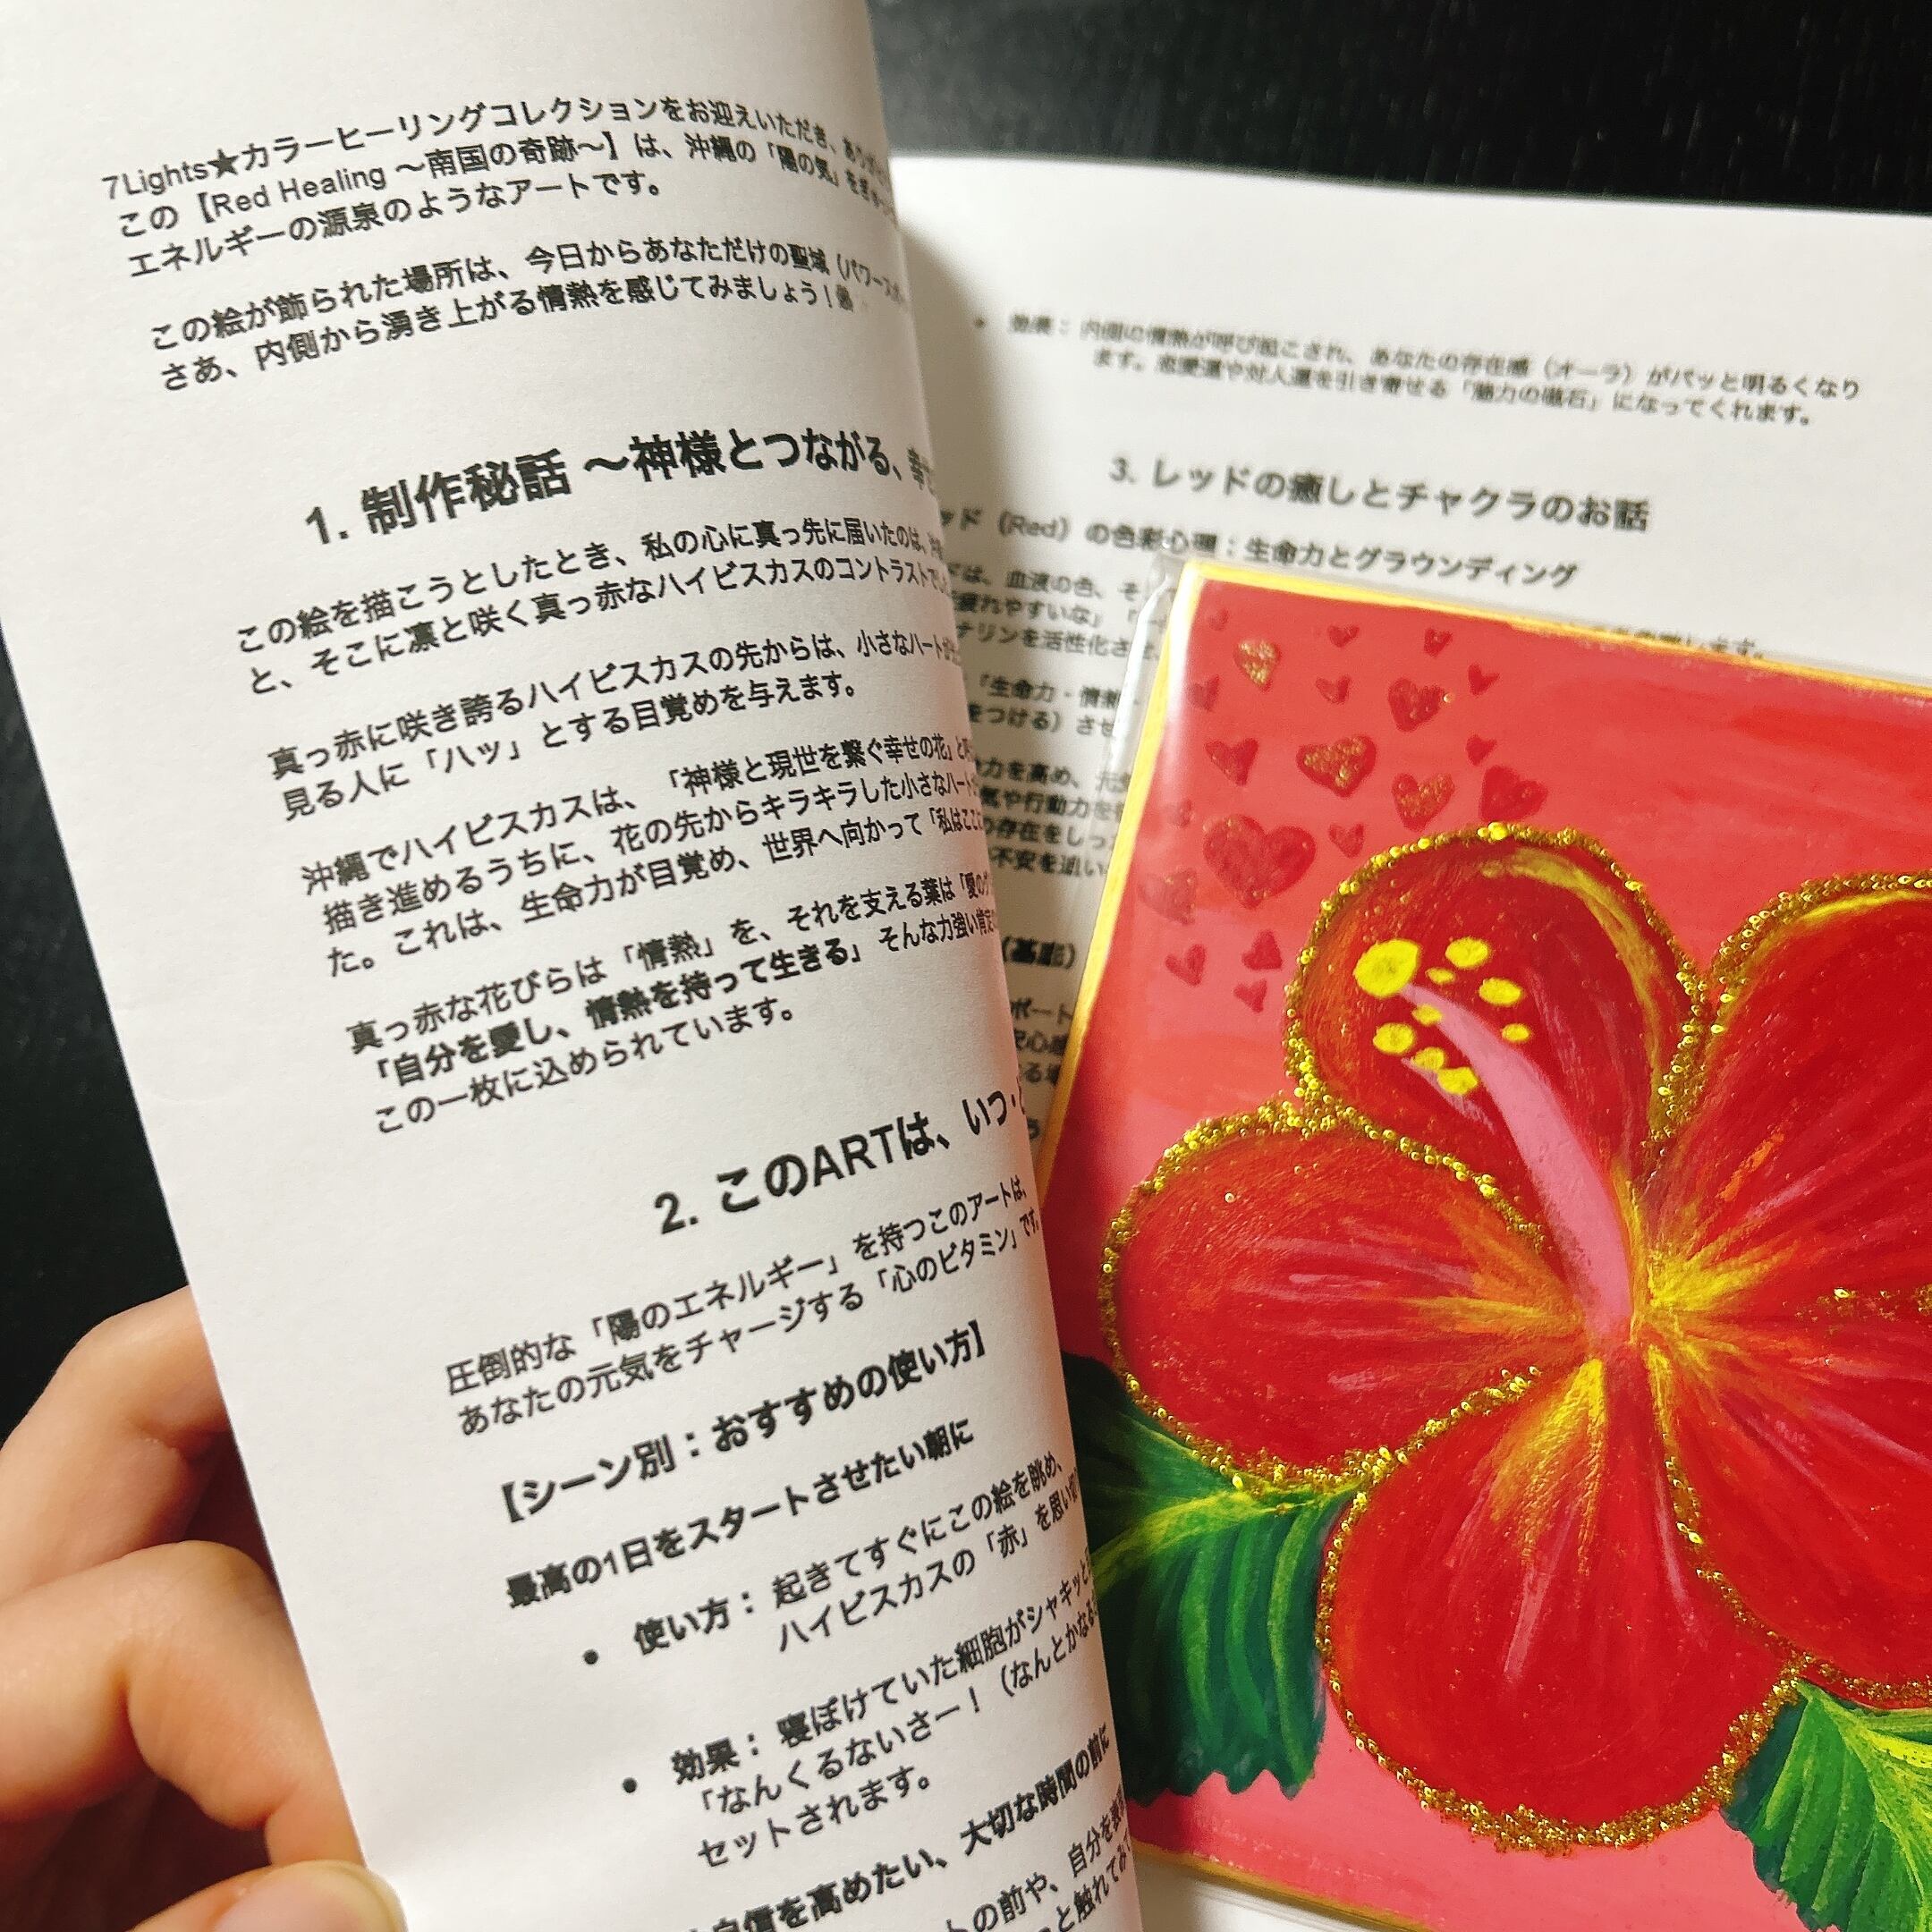 7Lights★カラーヒーリングコレクションをお迎えいただき、
この【Red Healing ～南国の奇跡～】は、沖縄の「陽の気」を
エネルギーの源泉のようなアートです。
この絵が飾られた場所は、今日からあなただけの聖域（パワース
さあ、内側から湧き上がる情熱を感じてみましょう！
1. 制作秘話 ～神様とつながる、
この絵を描こうとしたとき、私の心に真っ先に届いたのは、
と、そこに凛と咲く真っ赤なハイビスカスのコントラストで
真っ赤に咲き誇るハイビスカスの先からは、小さなハートが
見る人に「ハッ」とする目覚めを与えます。
沖縄でハイビスカスは、「神様と現世を繋ぐ幸せの花」と
描き進めるうちに、花の先からキラキラした小さなハート
た。これは、生命力が目覚め、世界へ向かって「私はここ
真っ赤な花びらは「情熱」を、それを支える葉は「愛の
「自分を愛し、情熱を持って生きる」そんな力強い肯定
この一枚に込められています。
2. このARTは、いつ・
圧倒的な「陽のエネルギー」を持つこのアートは、
あなたの元気をチャージする「心のビタミン」です
【シーン別：おすすめの使い方】
最高の1日をスタートさせたい朝に
• 使い方： 起きてすぐにこの絵を眺め、
ハイビスカスの「赤」を思い
• 効果： 寝ぼけていた細胞がシャキッと
「なんくるないさー！（なんとかなる
セットされます。
自信を高めたい、大切な時間の前に
の前や、自分を
と触れてみ
• 効果： 内側の情熱が呼び起こされ、あなたの存在感（オーラ）がパッと明るくなり
ます。恋愛運や対人運を引き寄せる「魅力の磁石」になってくれます。
3. レッドの癒しとチャクラのお話
ッド（Red）の色彩心理：生命力とグラウンディング
ドは、血液の色、そ
疲れやすいな」「
ナリンを活性化さ
「生命力・情熱
をつける）させ
力を高め、元
気や行動力を
存在をしっ
不安を追い
（基底）
ポート
安心感